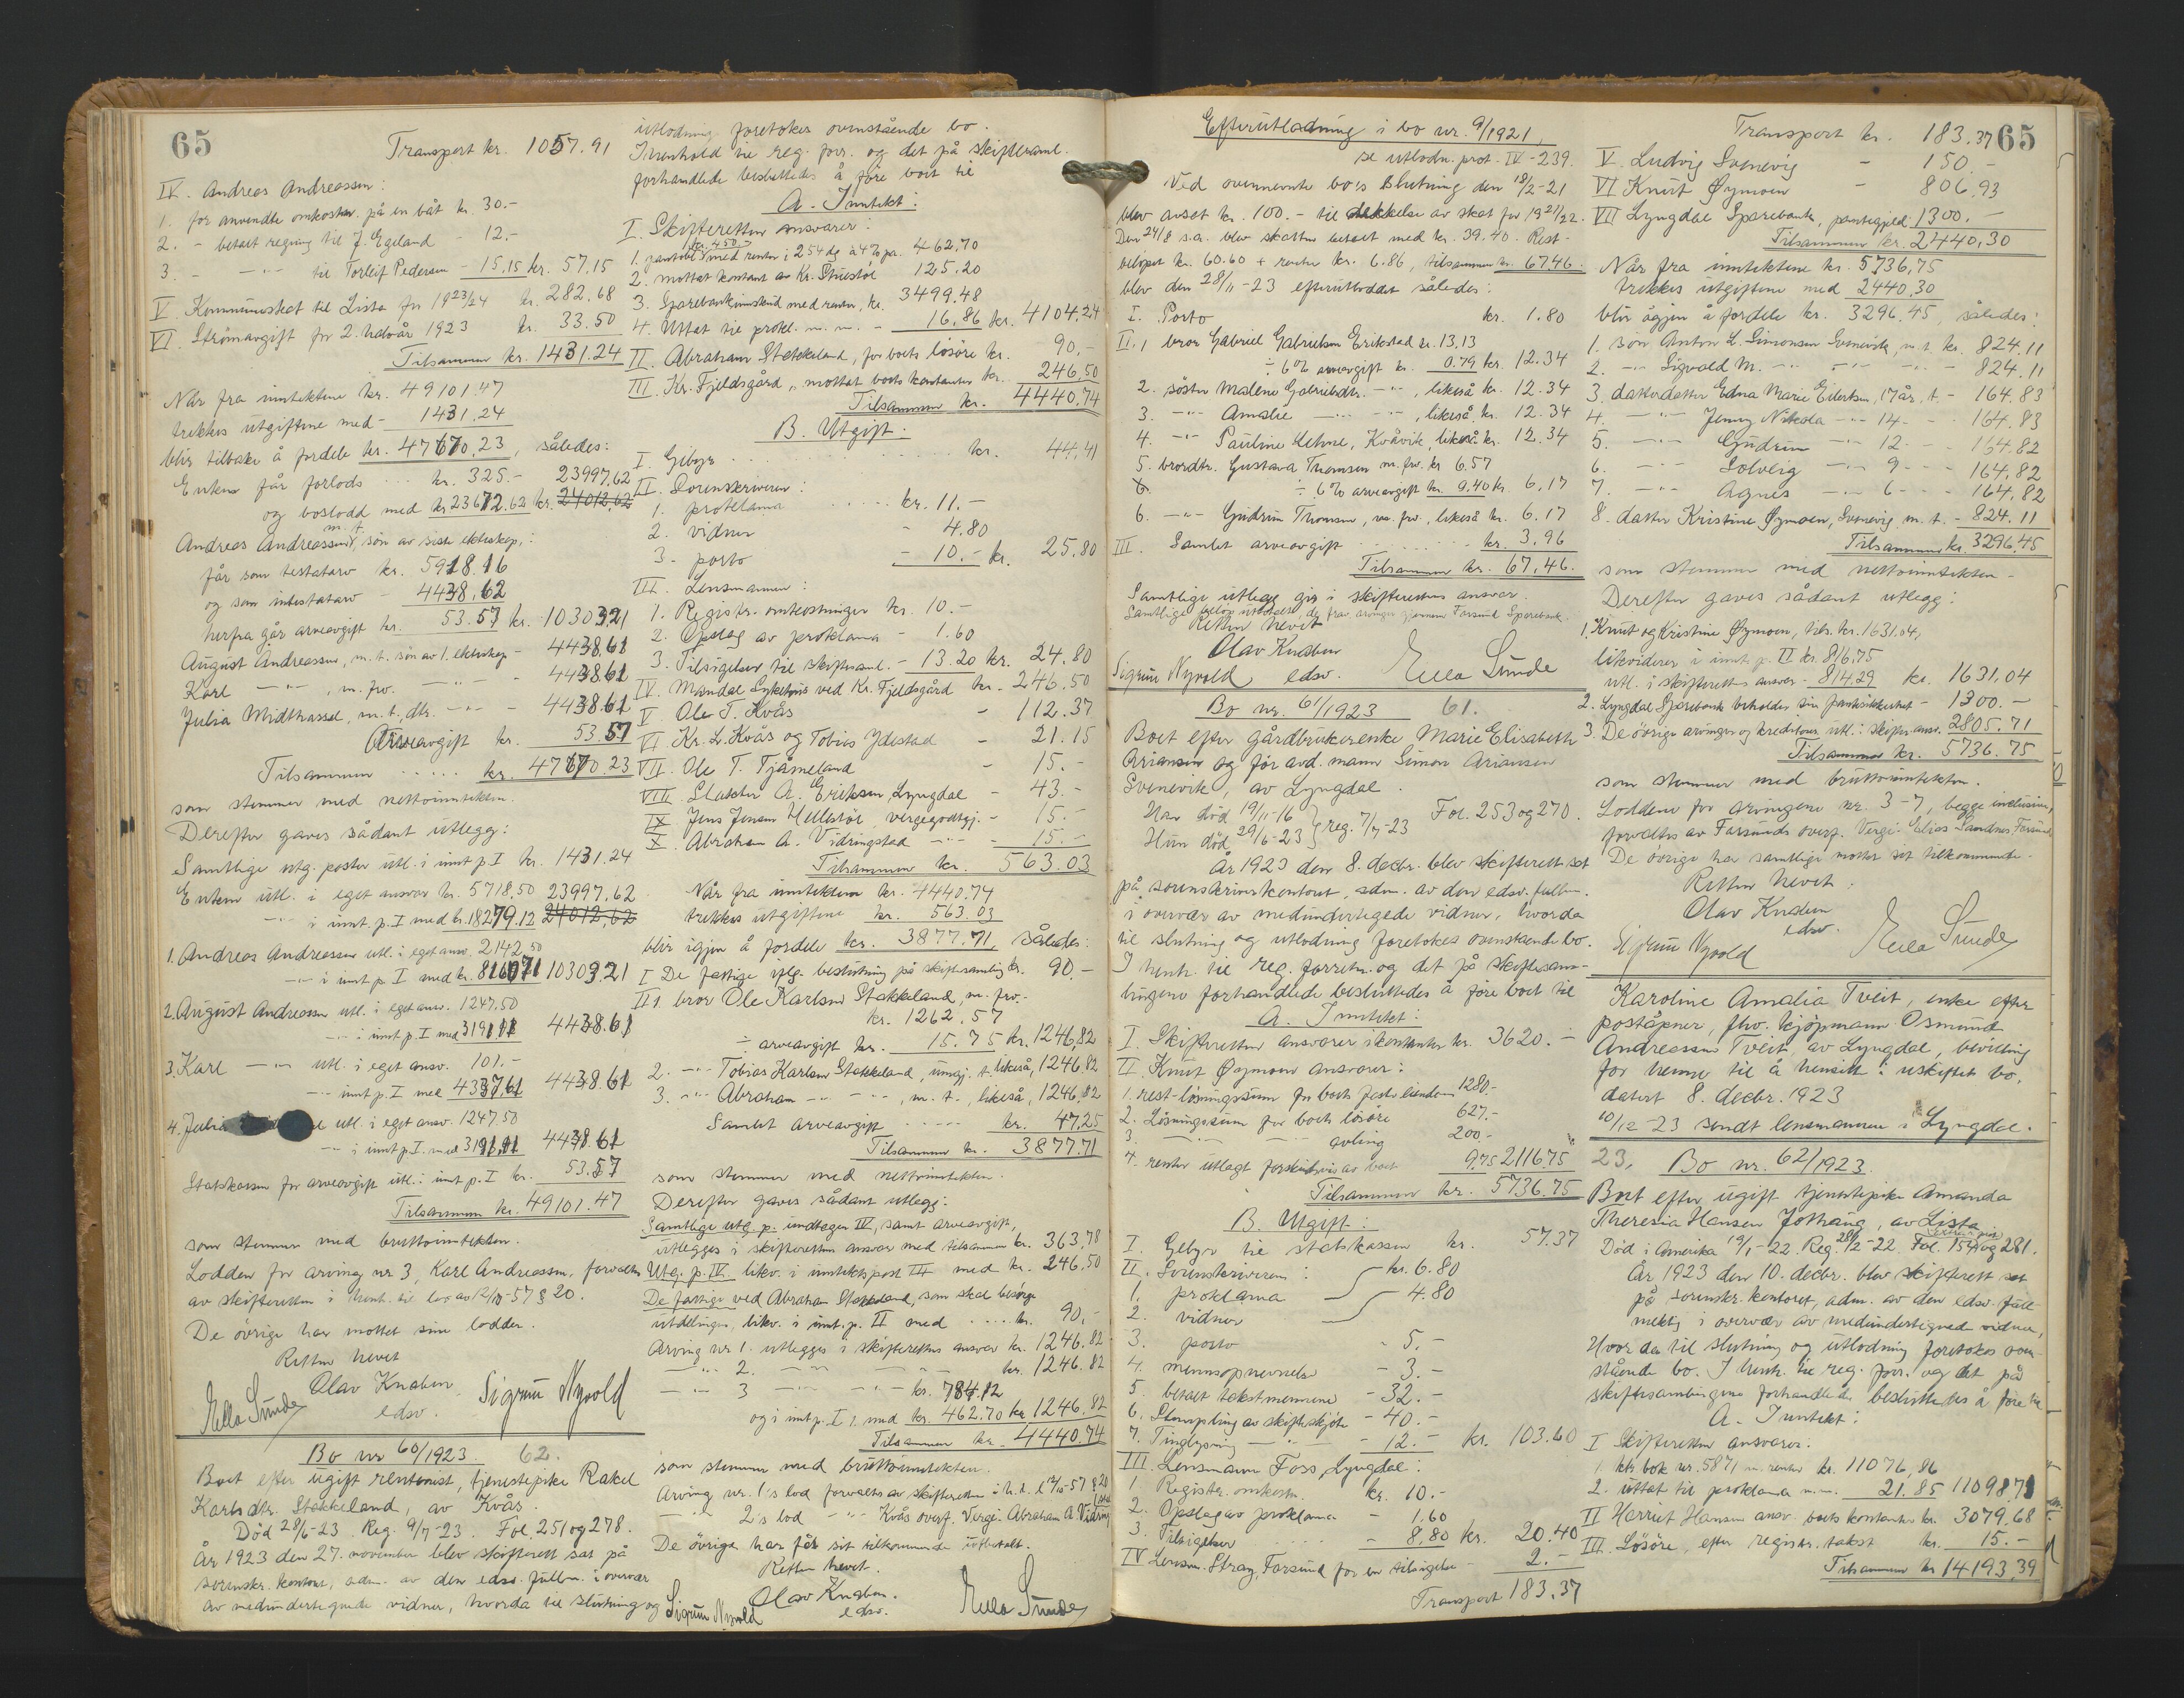 65
Transport kr. 1057.91
IV. Andreas Andreassen:
1. for anvendte omkostn. på en båt kr. 30.-
2. - betalt regning til J. Egeland - 12.-
3. - -"- til Torleif Pedersen - 15,15 kr. 57,15
V. Kommuneskat til Lista for 1923/24 kr. 282,68
VI. Strømavgift for 2. halvår 1923 kr. 33.50
Tilsammen kr. 1431.24
Når fra inntektene kr. 49101.47
trekkes utgiftene med - 1431.24
blir tilbake å fordele kr. 47670,23, således:
Enken får forlods ... kr. 325.- 23997,62
og boslodd med kr. 23672.62 kr. 24012,62
Andreas Andreassen m.t., søn av siste ekteskap,:
får som testatarv kr. 5918.16
og som intestatarv - 4438,62
herfra går arveavgift kr. 53.57 kr. 10303,21
August Andreassen, m.t. søn av 1. ekteskap - 4438.61
Karl -"-, m. fw. -"- - 4438.61
Julia Midthassel, m.t., dtr. -"- - 4438.61
Arveavgift kr. 53.57
Tilsammen ..... kr. 47670.23
som stemmer med nettoinntekten.
Derefter gaves sådant utlegg:
Samtlige utg. poster utl. i innt p. I kr. 1431.24
Enken utl. i eget ansvar kr. 5718.50 23997,62
-"- i innt. p. I med kr. 18279,12 24012,62
1. Andreas Andreassen utl. i eget answ. 2142,50
-"- i innt p. I med kr. 8160,71 10303.21
2. August Andreassen utl. i eget answ. 1247.50
-"- i innt p. I med 3191.11 4438.61
3. Karl -"- utl. i eget answ. 101.-
-"- innt p. I med 4337,61 4438.61
4. Julia utl. i eget answ. 1247.50
-"- i innt p. I. med 3191,11 4438.61
Statskassen for arveavgift utl. i innt p. I kr. 53.57
Tilsammen kr. 49101.47
som stemmer med bruttoinntekten.
Lodden for arving nr 3, Karl Andreassen, forvaltes
av skifteretten i henh. til lov av 12/10-57 § 20.
De øvrige har mottet sine lodder.
Retten hevet
Olav Knaben
edsv.
Ella Sunde
Sigrun Nyvold
Bo nr 60/1923 62.
Boet efter ugift rentenist, tjenestepike Rakel
Karlsdtr. Stakkeland, av Kvås.
Død 28/6-23. Reg. 9/7-23. Fol. 251 og 278.
År 1923 den 27. november blev skifterett sat på
sorenskr. kontoret, adm. av den edsv. fullm. i overvær
av medundertegnede vidner, hvorda til slutning og
utlodning foretokes ovenstående bo.
I henhold til reg. forr. og det på skiftesaml.
forhandlede besluttedes å føre boet til
A. Inntekt:
I. Skifteretten ansvarer:
1. pantobl. kr. 450.- med renter i 254 dg à 4% pa. 462,70
2. mottat kontant av Kr. Stuestøl 125,20
3. Sparebankinnskud med renter, kr. 3499,48
4. Uttat til prokl. m. m. - 16,86 kr. 4104,24
II. Abraham Stakkeland, for boets løsøre kr. 90,-
III. Kr. Fjeldsgård, mottat boets kontanter kr. 246,50
Tilsammen kr. 4440,74
B. Utgift:
I. Gebyr ............ kr. 44,41
II. Sorenskriveren:
1. proklama .... kr. 11.-
2. vidner - 4.80
3. porto - 10.- kr. 25.80
III. Lensmannen:
1. Registr. omkostninger kr. 10.-
2. Opslag av proklama - 1.60
3. Tilsigelser til skiftesaml. - 13.20 kr. 24.80
IV. Mandal Sykehus ved Kr. Fjeldsgård kr. 246.50
V. Ole T. Kvås - 112.37
VI. Kr. L. Kvås og Tobias Ydestad - 21.15
VII. Ole T. Tjåmeland - 15.-
VIII. Slakter A. Eriksen, Lyngdal - 43.-
IX. Jens Jensen Hellestøl, vergegodtgj. - 15.-
X. Abraham A. Vidringstad -"- - 15.-
Tilsammen kr. 563.03
Når fra inntektene kr. 4440.74
trekkes utgiftene kr. 563.03
blir igjen å fordele kr. 3877.71, således:
I De fattige iflg. beslutning på skiftesamling kr. 90.-
II 1. bror Ole Karlsen Stakkeland, m. frv.
kr. 1262.57
÷ arveavgift kr. 15.75 kr. 1246,82
2. -"- Tobias Karlsen Stakkeland, umyj. t. likeså, 1246,82
3. -"- Abraham -"- -"-, m. t., likeså, 1246,82
Samlet arveavgift ..... kr. 47,25
Tilsammen kr. 3877.71
som stemmer med nettoinntekten.
Derefter gaves sådant utlegg:
Samtlige utg. p. undtagen IV, samt arveavgift,
utlegges i skifterettens ansvar med tilsammen kr. 363,78
Utg. p. IV. likv. i inntektspost III med kr. 246.50
De fattige ved Abraham Stakkeland, som skal besørge
utdelingen, likv. i innt. p. II med .... kr. 90,-
Arving nr 1. utlegges i skifterettens ansvar kr. 1246.82
-"- 2. -"- -"- kr. 1246.82
-"- 3 -"- -"- kr. 784.12
og i innt p. I 1, med kr. 462.70 kr. 1246.82
Tilsammen kr. 4440.74
som stemmer med bruttoinntekten.
Arving nr. 1's lod forvaltes av skifteretten i h. t. l 12/10-57 § 20
-"- 2's lod -"- Kvås overf. Verge: Abraham A. Vidring
De øvrige har fåt sit tilkommende utbetalt.
Retten hevet.
Olav Knaben.
edsv.
Sigrun Nyvold
Ella Sunde
Efterutlodning i bo nr. 9/1921,
se utlodn. prot. IV-239.
Ved ovennevnte bo's slutning den 18/2-21
blev avsat kr. 100.- til dekkelse av skat for 1921/22.
Den 24/8 s.a. blev skatten betalt med kr. 39.40. Rest-
beløpet kr. 60.60 + renter kr. 6.86, tilsammen kr. 67.46.
blev den 28/11-23 efterutloddet således:
I. Porto kr. 1.80
II. 1 bror Gabriel Gabrielsen Erikstad kr. 13,13
÷ 6% arveavgift kr. 0.79 kr. 12.34
2. søster Malene Gabrielsdtr. -"-, likeså kr. 12.34
3. -"- Amalie -"- -"-, likeså kr. 12.34
4. -"- Pauline Lehne, Kvåvik, likeså kr. 12.34
5. brordtr. Gustava Thomsen m. fw. kr 6.57
÷ 6% arveavgift kr. 0.40 kr. 6,17
6. -"- Gudrun Thomsen, m. fw., likeså kr. 6.17
III. Samlet arveavgift ........ kr. 3.96
Tilsammen kr. 67.46.
Samtlige utlegg gis i skifterettens ansvar.
Retten hevet
Olav Knaben
edsv.
Sigrun Nyvold
Ella Sunde
Bo nr. 61/1923 61.
Boet efter gårdbrukerenke Marie Elisabeth
Ariansen og før avd. mann Simon Ariansen
Svenevik, av Lyngdal.
Han død 19/11-16
Hun død 29/6-23 } reg. 7/7-23 Fol. 253 og 270.
År 1923 den 8. decbr. blev skifterett sat
på sorenskriverkontoret, adm. av den edsv. fullm.
i overvær av medundertegnede vidner, hvorda
til slutning og utlodning foretokes ovenstående bo.
I henh. til reg. forretn. og det på skiftesam-
lingene forhandlede besluttedes å føre boet til
A. Inntekt:
I. Skifteretten ansvarer i kontanter kr. 3620.-
II. Knut Øymoen ansvarer:
1. rest-løsningssum for boets faste eiendom 1280.-
2. Løsningssum for boets løsøre 627.-
3. -"- avling 200.-
4. renter utlagt forskudsvis av boet 9.75 2116.75
Tilsammen kr. 5736.75
B. Utgift:
I. Gebyr til statskassen kr. 57.37
II. Sorenskriveren:
1. proklama kr. 6.80
2. vidner 4.80
3. porto - 5.-
4. mennsopnevnelse - 3.-
5. betalt takstmennene - 32.-
6. Stempling av skifteskjøte - 40.-
7. Tinglysning -"- - 12.- kr. 103.60
III. Lensmann Foss, Lyngdal:
1 Registr. omkostn. kr. 10.-
2. Opslag av proklama - 1.60
3. Tilsigelser - 8,80 kr. 20.40
IV Lensm. Stray, Farsund for en tilsigelse - 2.-
Transport 183.37
Transport kr. 183.37
65
V. Ludvig Svenevig - 150.-
VI Knut Øymoen - 806,93
VII Lyngdal Sparebank, pantegjeld 1300.-
Tilsammen kr. 2440,30
Når fra inntektene kr. 5736,75
trekkes utgiftene med 2440.30
blir igjen å fordele kr. 3296.45, således:
1. søn Anton L. Simonsen Svenevik, m. t. kr. 824.11
2. -"- Sigvald M. -"- -"- -"- 824.11
3. datterdatter Edna Marie Eilertsen, 17 år, t. - 164.83
4. -"- Jenny Nikola -"- 14 - - 164.83
5. -"- Gudrun -"- 12 - 164.82
6. -"- Solveig -"- 9 - - 164,82
7. -"- Agnes -"- 6 - - 164,82
8. datter Kristine Øymoen, Svenevig m. t. - 824.11
Tilsammen kr. 3296.45
som stemmer med nettoinntekten -
Derefter gaves sådant utlegg:
1. Knut og Kristine Øymoen, tils. kr. 1631.04,
likviderer i innt. p. II kr. 816.75
utl. i skifterettens ansvar - 814.29 kr. 1631.04
2. Lyngdal Sparebank beholder sin pantsikkerhet - 1300.-
3. De øvrige arvinger og kreditorer utl. i skifter. answ. 2805.71
Tilsammen kr. 5736.75
som stemmer med bruttoinntekten.
Loddene for arvingene nr. 3-7, begge inclusive,
forvaltes av Farsunds overf. Verge: Elias Sandnes, Farsund.
De øvrige har samtlige mottat sit tilkommende.
Retten hevet:
Olav Knaben
edsv.
Sigrun Nyvold
Ella Sunde
Karoline Amalia Tveit, enke efter
poståpner, fhv. kjøpmann Osmund
Andreassen Tveit, av Lyngdal, bevilling
for henne til å hensitte i uskiftet bo,
datert 8. decbr. 1923
10/12-23 sendt lensmannen i Lyngdal.
23. Bo nr. 62/1923.
Boet efter ugift tjenestepike Amanda
Theresia Hansen Jøthaug, av Lista
Død i Amerika 19/1-22. Reg. 28/2-22. Fol. 154 og 281.
År 1923 den 10. decbr. blev skifterett sat
på sorenskr. kontoret, adm. av den edsv. full-
mektig i overvær av medundertegnede vidner,
Hvorda til slutning og utlodning foretokes oven-
stående bo. I henh. til reg. forr. og det på
skiftesamlingene forhandlede besluttedes å føre til
A. Inntekt:
I Skifteretten ansvarer:
1. ktr. bok nr. 5871 m. renter kr. 11076,86
2. uttat til proklama m.m. 21.85 11098.71
II Harriet Hansen answ. boets kontanter kr. 3079,68
III. Løsøre, efter registr. takst kr. 15.-
Tilsammen kr 14193,39